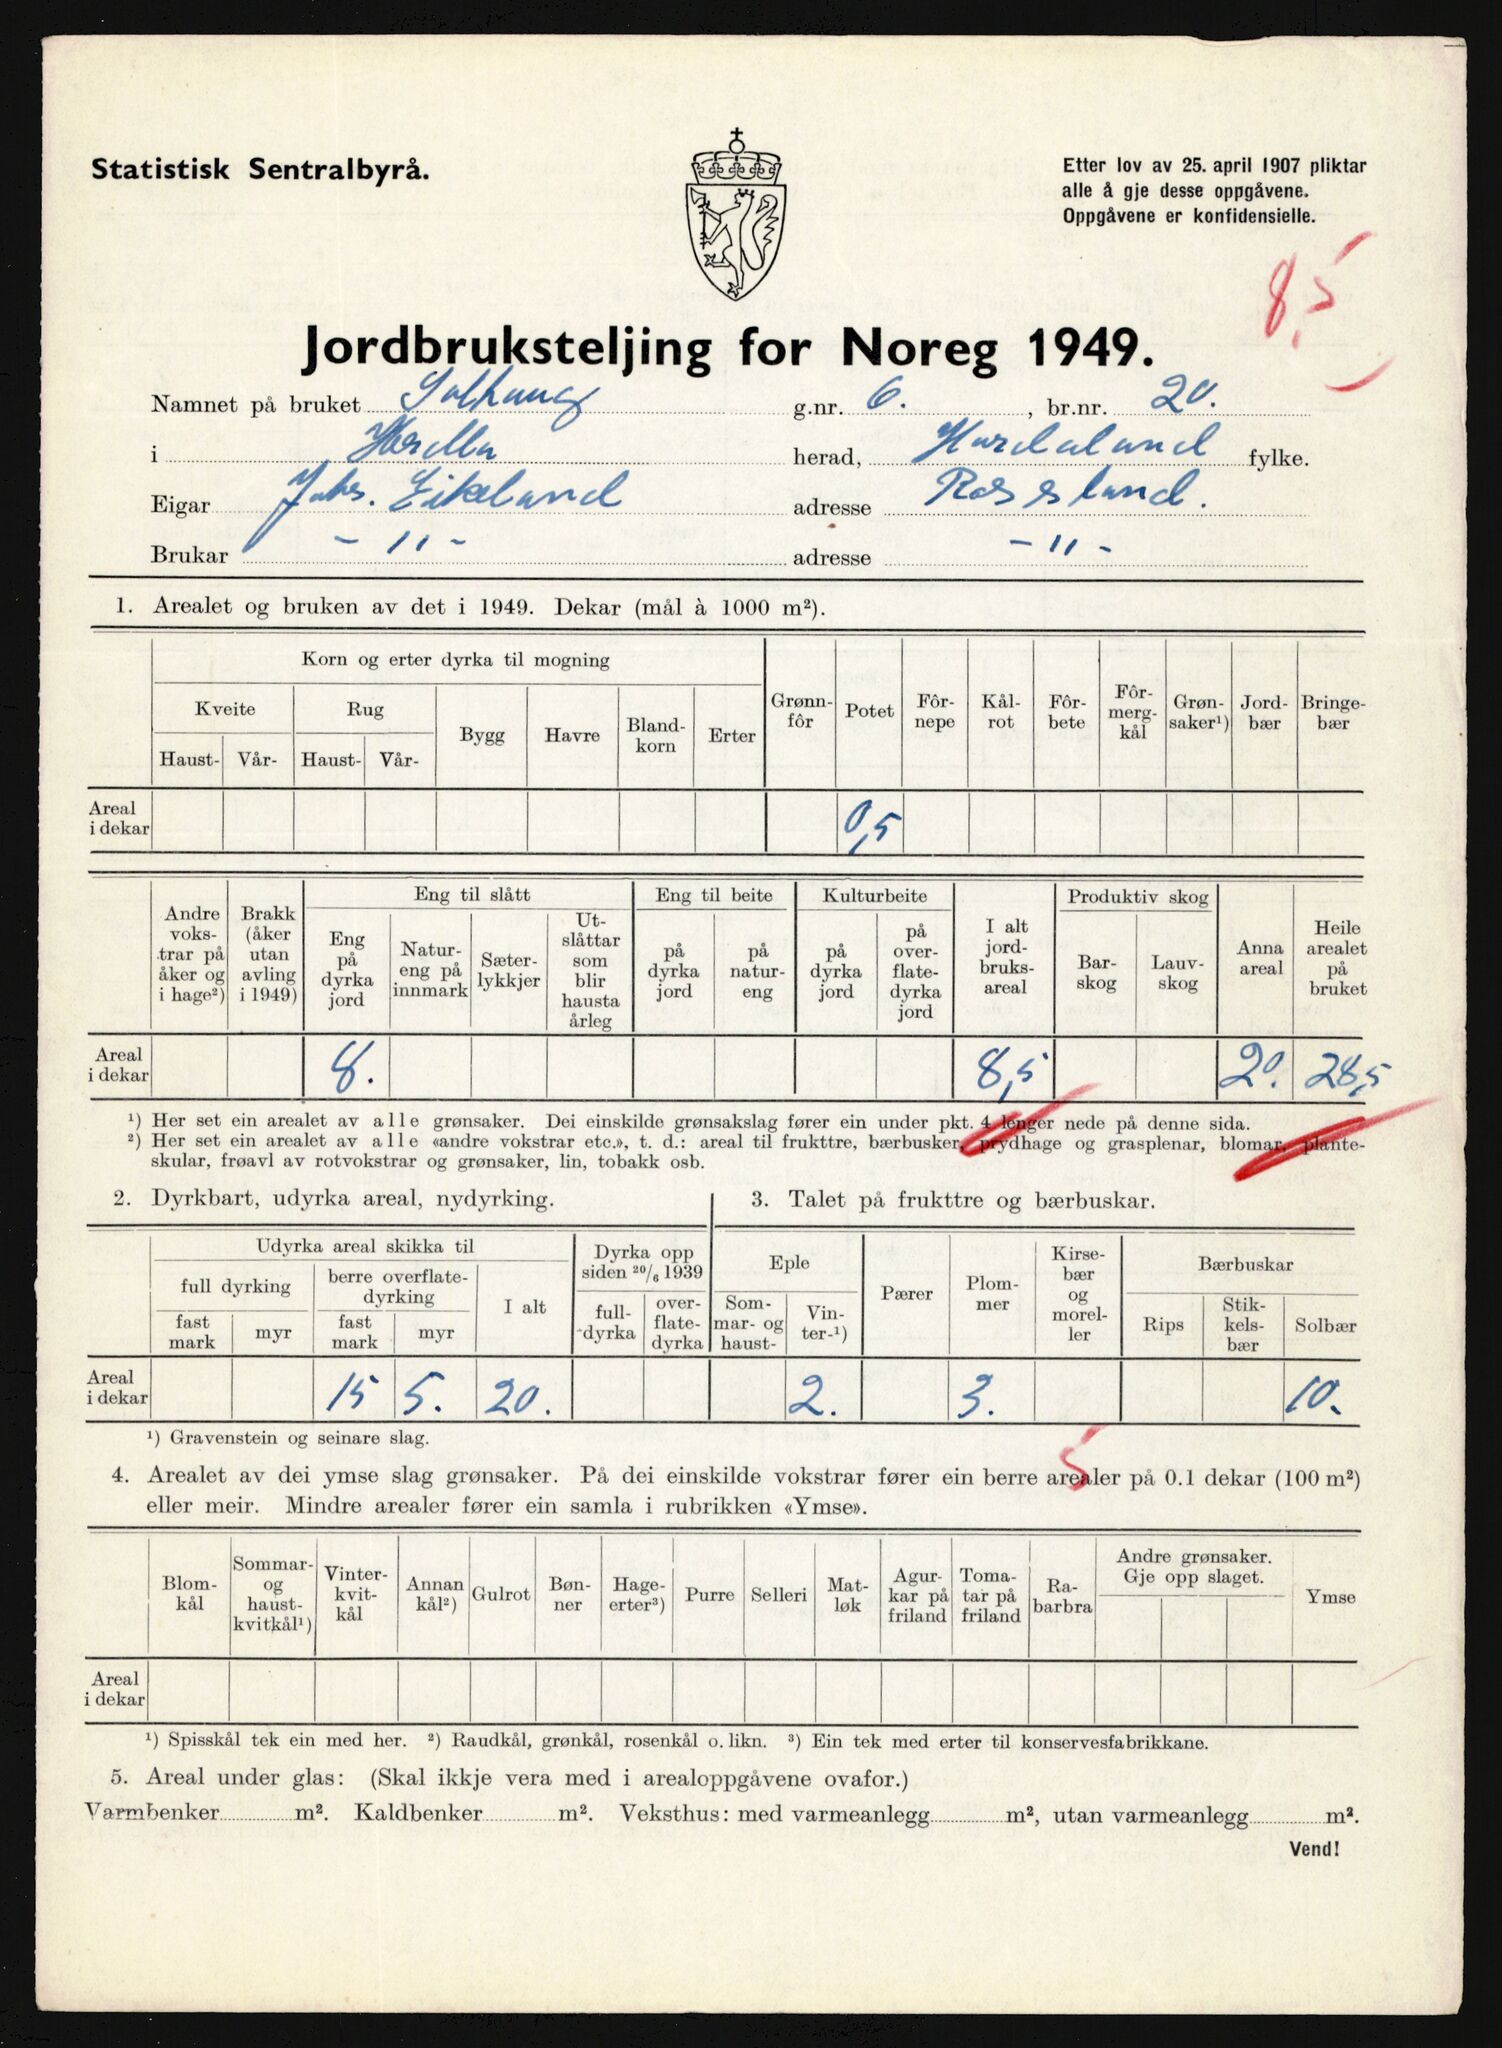 Statistisk Sentralbyrå.
Etter lov av 25. april 1907 pliktar
alle å gje desse oppgåvene.
Oppgåvene er konfidensielle.
8,5
Jordbruksteljing for Noreg 1949.
Namnet på bruket Solhaug g.nr. 6. , br.nr. 20.
i Herdla herad, Hordaland fylke.
Eigar Johs. Eikeland adresse Rossland.
Brukar -"- adresse -"-
1. Arealet og bruken av det i 1949. Dekar (mål à 1000 m²).
Korn og erter dyrka til mogning
Kveite Rug Bygg Havre Bland-korn Erter Grønn-fôr Potet Fôr-nepe Kål-rot Fôr-bete Fôr-merg-kål Grøn-saker¹) Jord-bær Bringe-bær
Haust- Vår- Haust- Vår-
Areal i dekar 0,5
Andre voks-trar på åker og i hage²) Brakk (åker utan avling i 1949) Eng til slått Eng til beite Kulturbeite I alt jord-bruks-areal Produktiv skog Anna areal Heile arealet på bruket
Eng på dyrka jord Natur-eng på innmark Sæter-lykkjer Ut-slåttar som blir hausta årleg på dyrka jord på natur-eng på dyrka jord på over-flate-dyrka jord Bar-skog Lauv-skog
Areal i dekar 8. 8,5 20. 28,5
¹) Her set ein arealet av alle grønsaker. Dei einskilde grønsakslag fører ein under pkt. 4 lenger nede på denne sida.
²) Her set ein arealet av alle «andre vokstrar etc.», t. d.: areal til frukttre, bærbusker, prydhage og grasplenar, blomar, plante-
skular, frøavl av rotvokstrar og grønsaker, lin, tobakk osb.
2. Dyrkbart, udyrka areal, nydyrking.
3. Talet på frukttre og bærbuskar.
Udyrka areal skikka til Dyrka opp siden 20/6 1939 Eple Pærer Plom-mer Kirse-bær og morel-ler Bærbuskar
full dyrking berre overflate-dyrking I alt full-dyrka over-flate-dyrka Som-mar- og haust- Vin-ter-¹) Rips Stik-kels-bær Solbær
fast mark myr fast mark myr
Areal i dekar 15 5. 20. 2. 3. 10.
¹) Gravenstein og seinare slag.
5
4. Arealet av dei ymse slag grønsaker. På dei einskilde vokstrar fører ein berre arealer på 0.1 dekar (100 m²)
eller meir. Mindre arealer fører ein samla i rubrikken «Ymse».
Blom-kål Sommar- og haust-kvitkål¹) Vinter-kvit-kål Annan kål²) Gulrot Bøn-ner Hage-erter³) Purre Selleri Mat-løk Agur-kar på friland Toma-tar på friland Ra-barbra Andre grønsaker. Gje opp slaget. Ymse
Areal i dekar
¹) Spisskål tek ein med her. ²) Raudkål, grønkål, rosenkål o. likn. ³) Ein tek med erter til konservesfabrikkane.
5. Areal under glas: (Skal ikkje vera med i arealoppgåvene ovafor.)
Varmbenker m². Kaldbenker m². Veksthus: med varmeanlegg m², utan varmeanlegg m².
Vend!